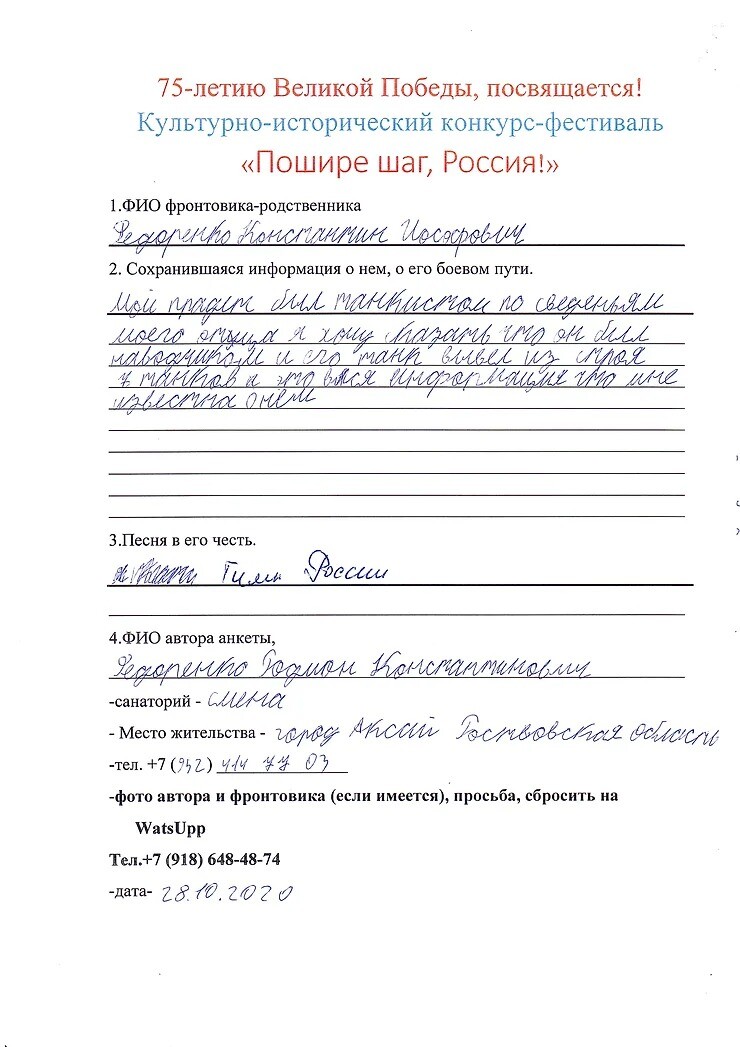 75-летию Великой Победы, посвящается!
Культурно-исторический конкурс-фестиваль
«Пошире шаг, Россия!»
1.ФИО фронтовика-родственника
Федоренко Константин Иосифович
2. Сохранившаяся информация о нем, о его боевом пути.
Мой прадед был танкистом по сведеньям
моего отца я хочу сказать что он был
наводчиком и его танк вывел из строя
7 танков и это вся информация что мне
известна о нём
3.Песня в его честь.
Гимн России
4.ФИО автора анкеты,
Федоренко Родион Константинович
-санаторий - смена
- Место жительства - город Аксай Роствовская область
-тел. +7 (932) 414 77 03
-фото автора и фронтовика (если имеется), просьба, сбросить на
WatsUpp
Тел.+7 (918) 648-48-74
-дата- 28.10.2020